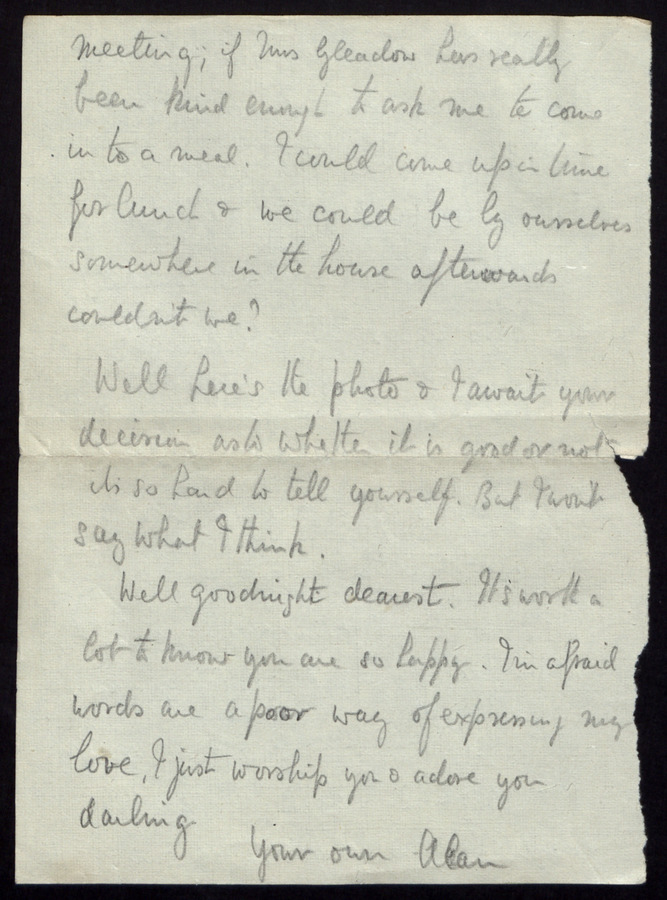 meeting; if Mrs Gleadow has really
been kind enough to ask me to come
in to a meal. I could come up in time
for lunch & we could be by ourselves
somewhere in the house afterwards
couldn't we?
Well here's the photo & I await your
decision as to whether it is good or not
its so hard to tell yourself. But I won't
say what I think.
Well goodnight dearest. It's worth a
lot to know you are so happy. I'm afraid
words are a poor way of expressing my
love, I just worship you & adore you
darling
Your own Alan